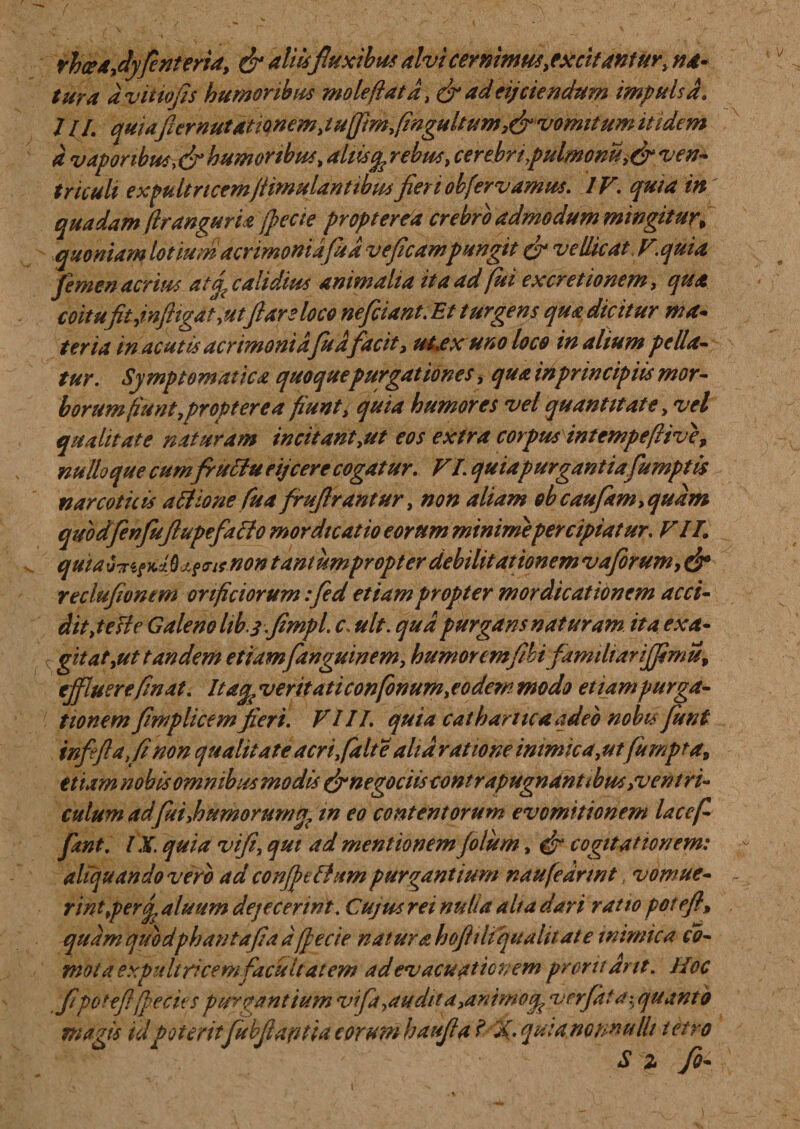 rhœa,dyſenteria, & aliis fluxibus alvi cernimus,excitantur, na-
tura à vitioſis humoribus moleſtatâ, & ad eijciendum impulsâ.
III. quia ſternutationem,tuſſim,ſingultum,& vomitum itidem
à vaporibus,& humoribus, aliisq́; rebus, cerebri,pulmonū,& ven-
triculi expultricem ſtimulantibus fieri obſervamus. IV. quia in
quadam ſtranguriæ ſpecie propterea crebrò admodum mingitur,
quoniam lotium acrimoniâ ſuâ veſicam pungit & vellicat. V. quia
ſemen acrius atq́; calidius animalia ita ad ſui excretionem, quæ
coitu fit,inſtigat,ut ſtare loco neſciant. Et turgens quæ dicitur ma-
teria in acutis acrimoniâ ſuâ facit, ut ex uno loco in alium pella-
tur. Symptomaticæ quoque purgationes, quæ in principiis mor-
borum fiunt,propterea fiunt, quia humores vel quantitate, vel
qualitate naturam incitant,ut eos extra corpus intempeſtivè,
nulloque cum fructu eijcere cogatur. VI. quia purgantia ſumptis
narcoticis actione ſua fruſtrantur, non aliam ob cauſam, quàm
quòd ſenſu ſtupefacto mordicatio eorum minimè percipiatur. VII.
quia ὑπερκάθαρσις non tantùm propter debilitationem vaſorum, &
recluſionem orificiorum : ſed etiam propter mordicationem acci-
dit,teste Galeno lib.3.ſimpl. c. ult. quâ purgans naturam ita exa-
gitat,ut tandem etiam ſanguinem, humorem ſibi familiariſſimū,
effluere ſinat. Itaq́; veritati conſonum,eodem modo etiam purga-
tionem ſimplicem fieri. VIII. quia cathartica adeò nobis ſunt
infeſta,ſi non qualitate acri,ſaltè aliâ ratione inimica,ut ſumpta,
etiam nobis omnibus modis & negociis contrapugnantibus,ventri-
culum ad ſui,humorumq́; in eo contentorum evomitionem laceſ-
ſant. IX. quia viſi, qui ad mentionem ſolùm, & cogitationem:
aliquando verò ad conſpectum purgantium nauſeârint, vomue-
rint,perq́; aluum dejecerint. Cujus rei nulla alia dari ratio poteſt,
quàm quòd phantaſia à ſpecie naturæ hoſtili qualitate inimica cō-
mota expultricem facultatem ad evacuationem proritârit. Hoc
ſi poteſt ſpecies purgantium viſa,audita,animoq́; verſata; quantò
magis id poterit ſubſtantia eorum hauſta? X. quia nonnulli tetro
S 2 ſo-